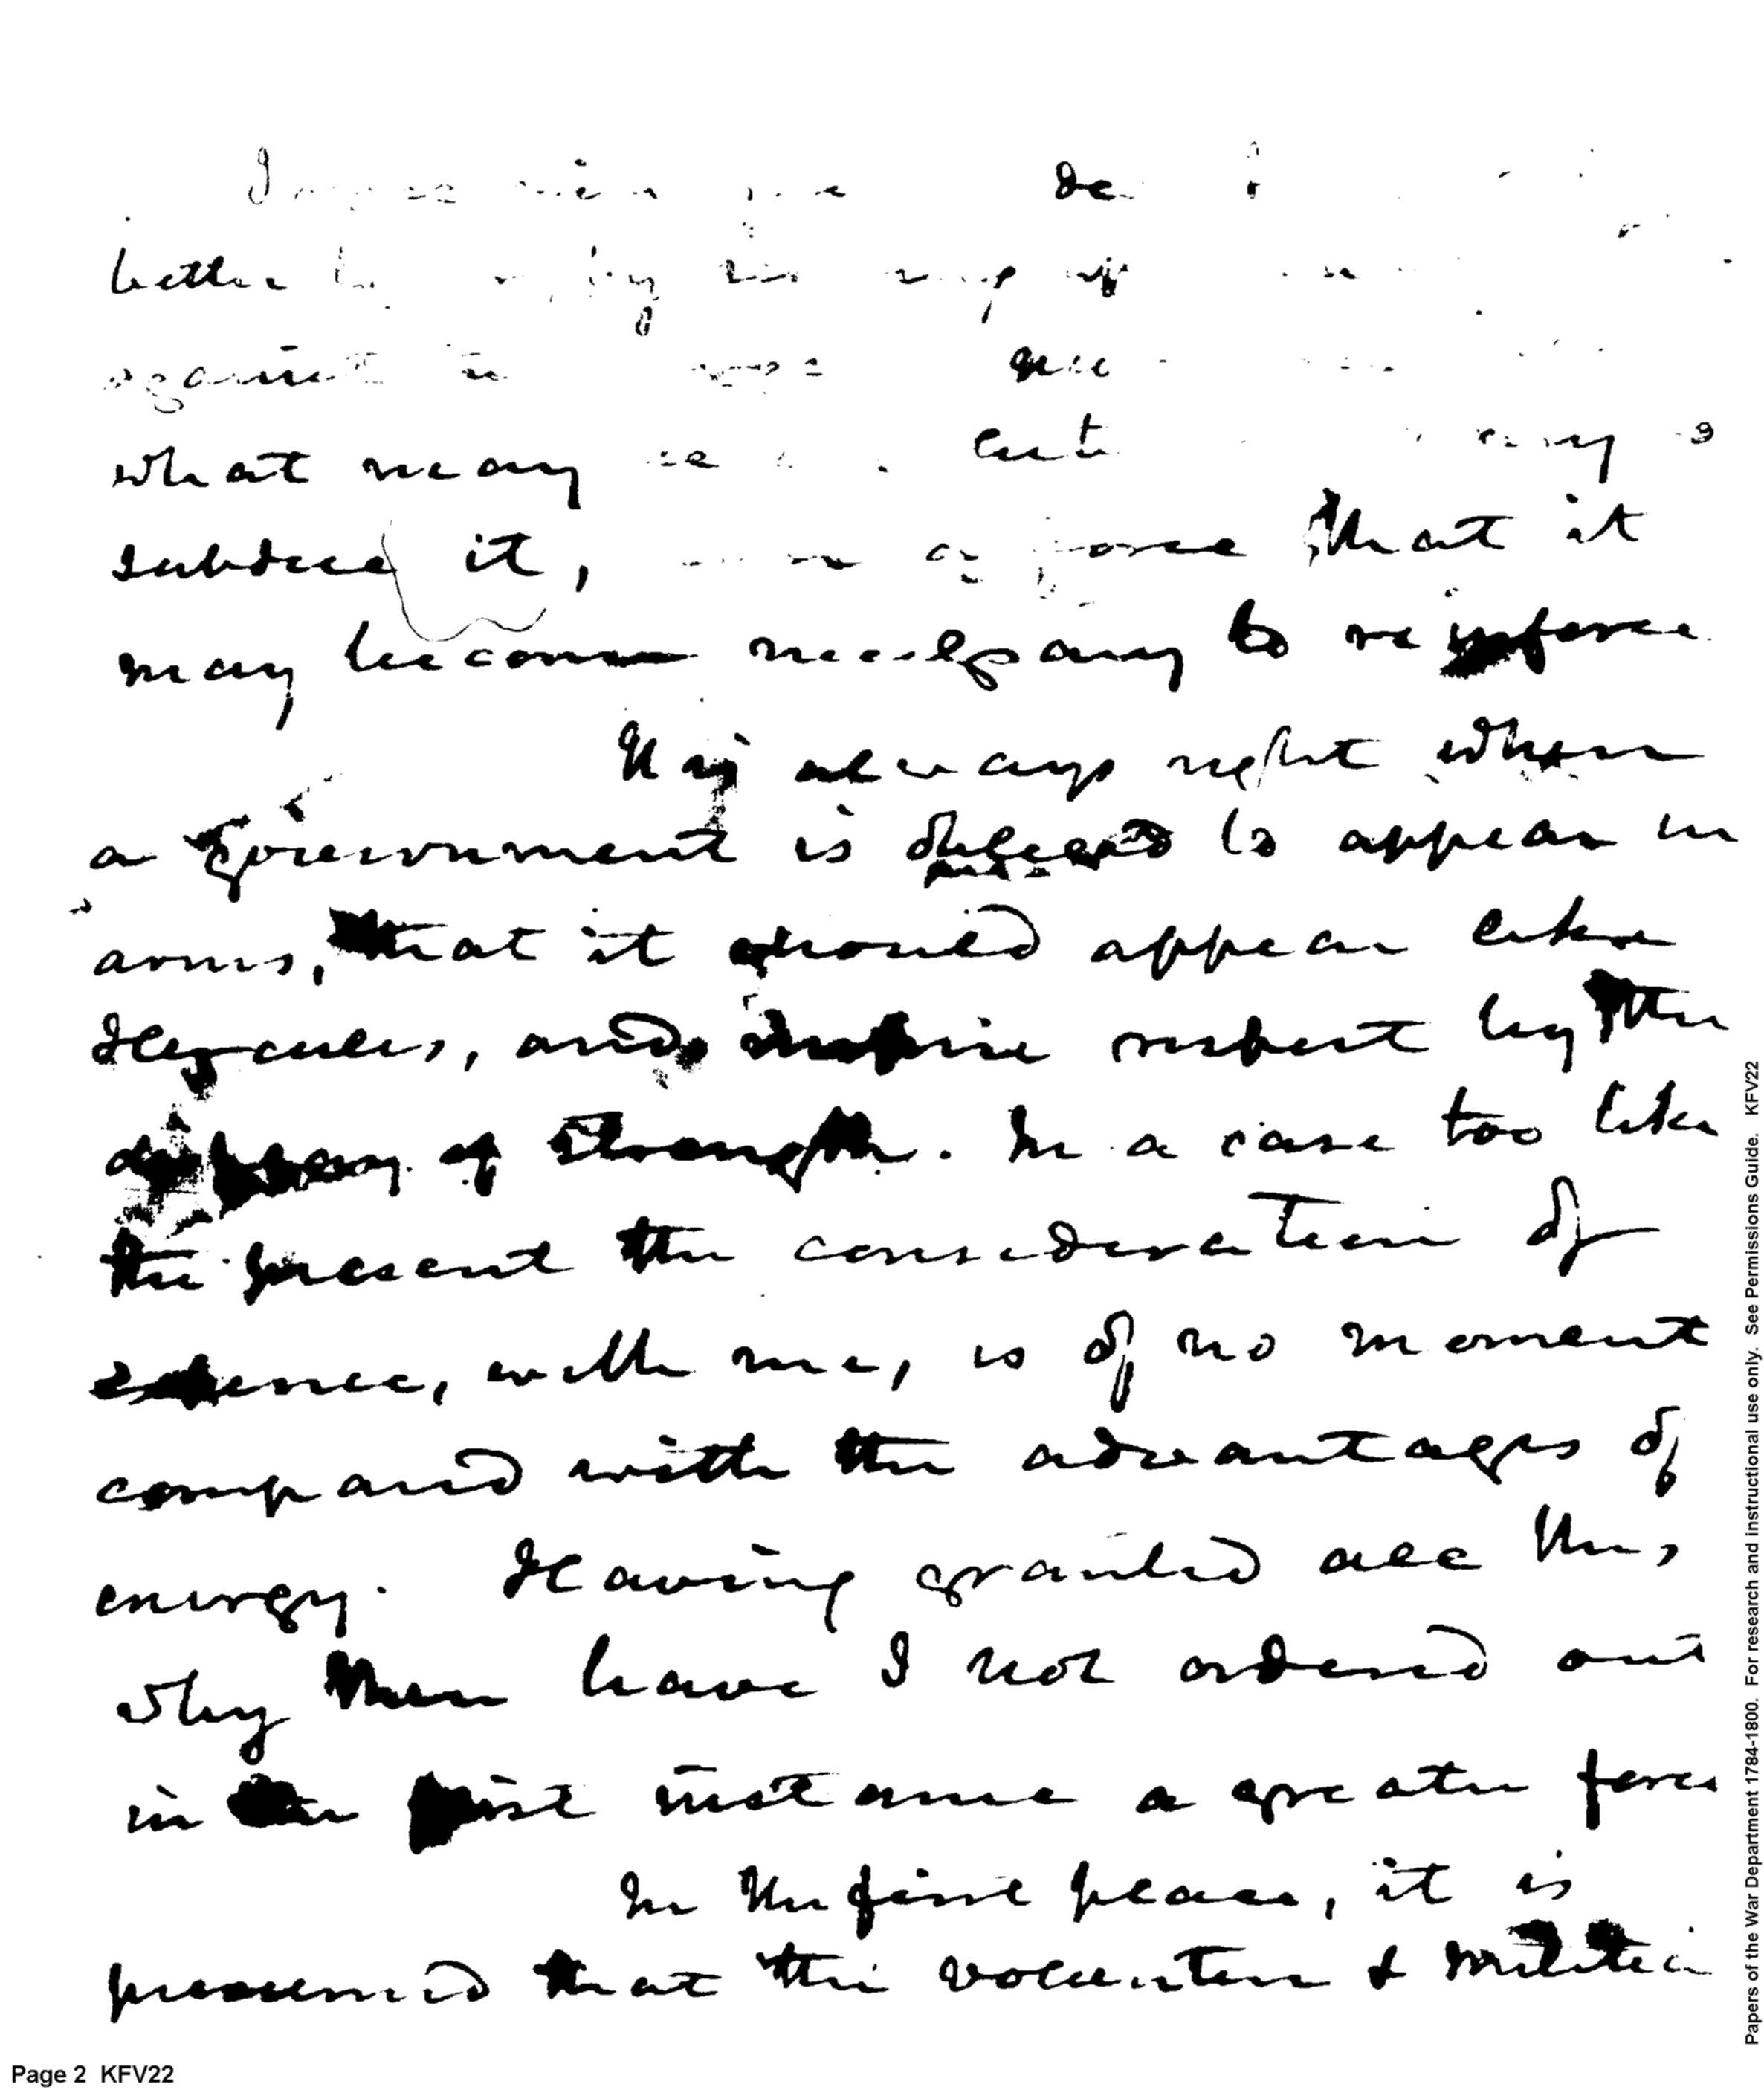 better
against
what may
subdue it, force that it
may become necessary to reinforce
It is always right when
a Government is to appear in
arms, that it should appear like
Hercules, and inspire respect by the
display of strength. In a case too like
the present the consideration of
expence, with me, is of no moment
compared with the advantages of
energy. Having granted all this,
why then have I not ordered out
in the first instance a greater force
In the first place, it is
presumed that the volunteer & militia
Page 2 KFV22
Papers of the War Department 1784-1800. For research and instructional use only. See Permissions Guide. KFV22